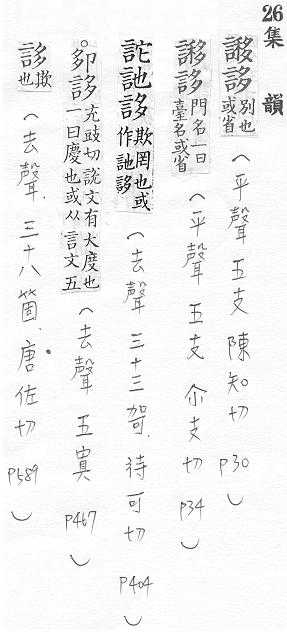 26集 韻
謻誃 別也或省 (平聲 五支 陳知切 p30)
謻誃 門名一曰臺名或省 (平聲 五支 尒支切 p34)
詑訑誃 欺罔也或作訑誃 (去聲 三十三哿. 待可切 p404)
。卶誃 充豉切說文有大度也一曰慶也或从言文五 (去聲 五寘 p467)
誃 欺也 (去聲. 三十八箇. 唐佐切 p589)